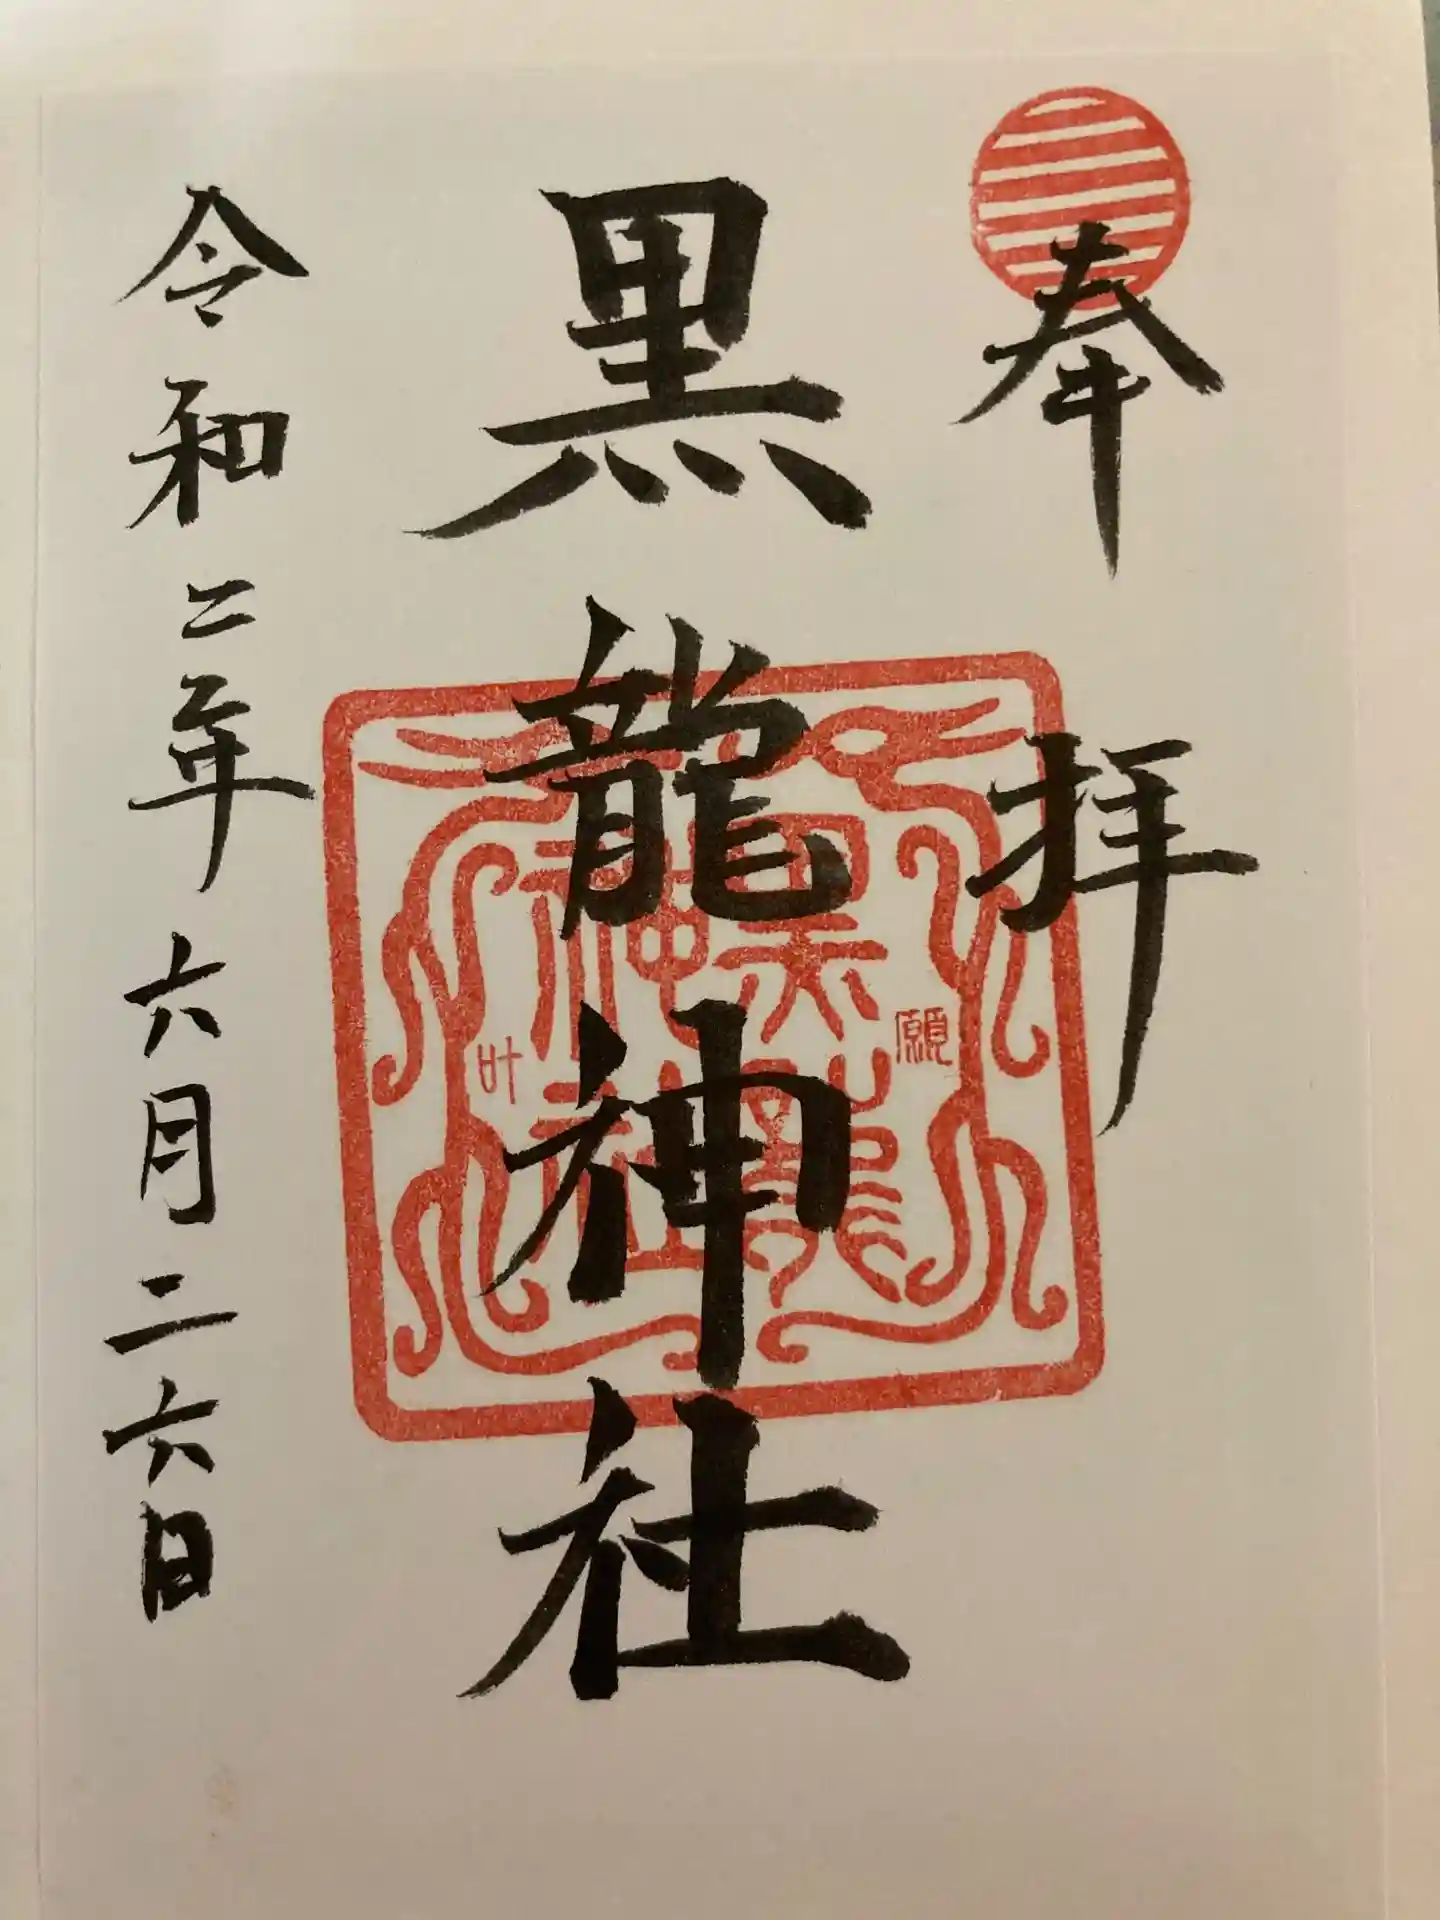 奉拝
黒龍神社
令和二年六月二六日
黒龍
神社
願
叶